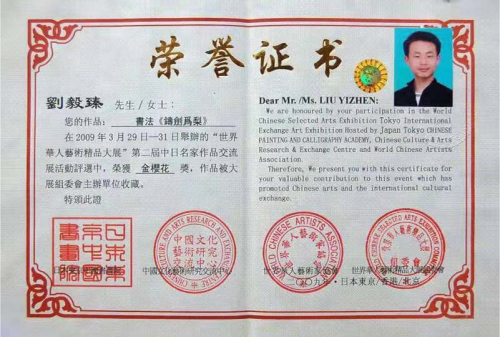 荣誉证书
劉毅臻 先生/女士：
您的作品： 書法《鑄劍爲犁》
在 2009 年 3 月 29 日—31 日舉辦的“世界
華人藝術精品大展”第二屆中日名家作品交流
展活動評選中，榮獲 金櫻花 獎，作品被大
展組委會主辦單位收藏。
特頒此證
Dear Mr. /Ms. LIU YIZHEN:
We are honoured by your participation in the World
Chinese Selected Arts Exhibition Tokyo International
Exchange Art Exhibition Hosted by Japan Tokyo CHINESE
PAINTING AND CALLIGRAPHY ACADEMY, Chinese Culture & Arts
Research & Exchange Centre and World Chinese Artists
Association.
Therefore, We present you with this certificate for
your valuable contribution to this event which has
promoted Chinese arts and the international cultural
exchange.
日本東京中國書畫院
CULTURE AND ARTS RESEARCH AND EXCHANGE
中國文化
藝術研究
交流中心
中國文化藝術研究交流中心
WORLD CHINESE ARTISTS ASSOCIATION
世界華人藝術家協會
世界華人藝術家協會
CHINESE SELECTED ARTS EXHIBITION
組委會
世界華人藝術精品大展組委會
二〇〇九年·日本東京/香港/北京